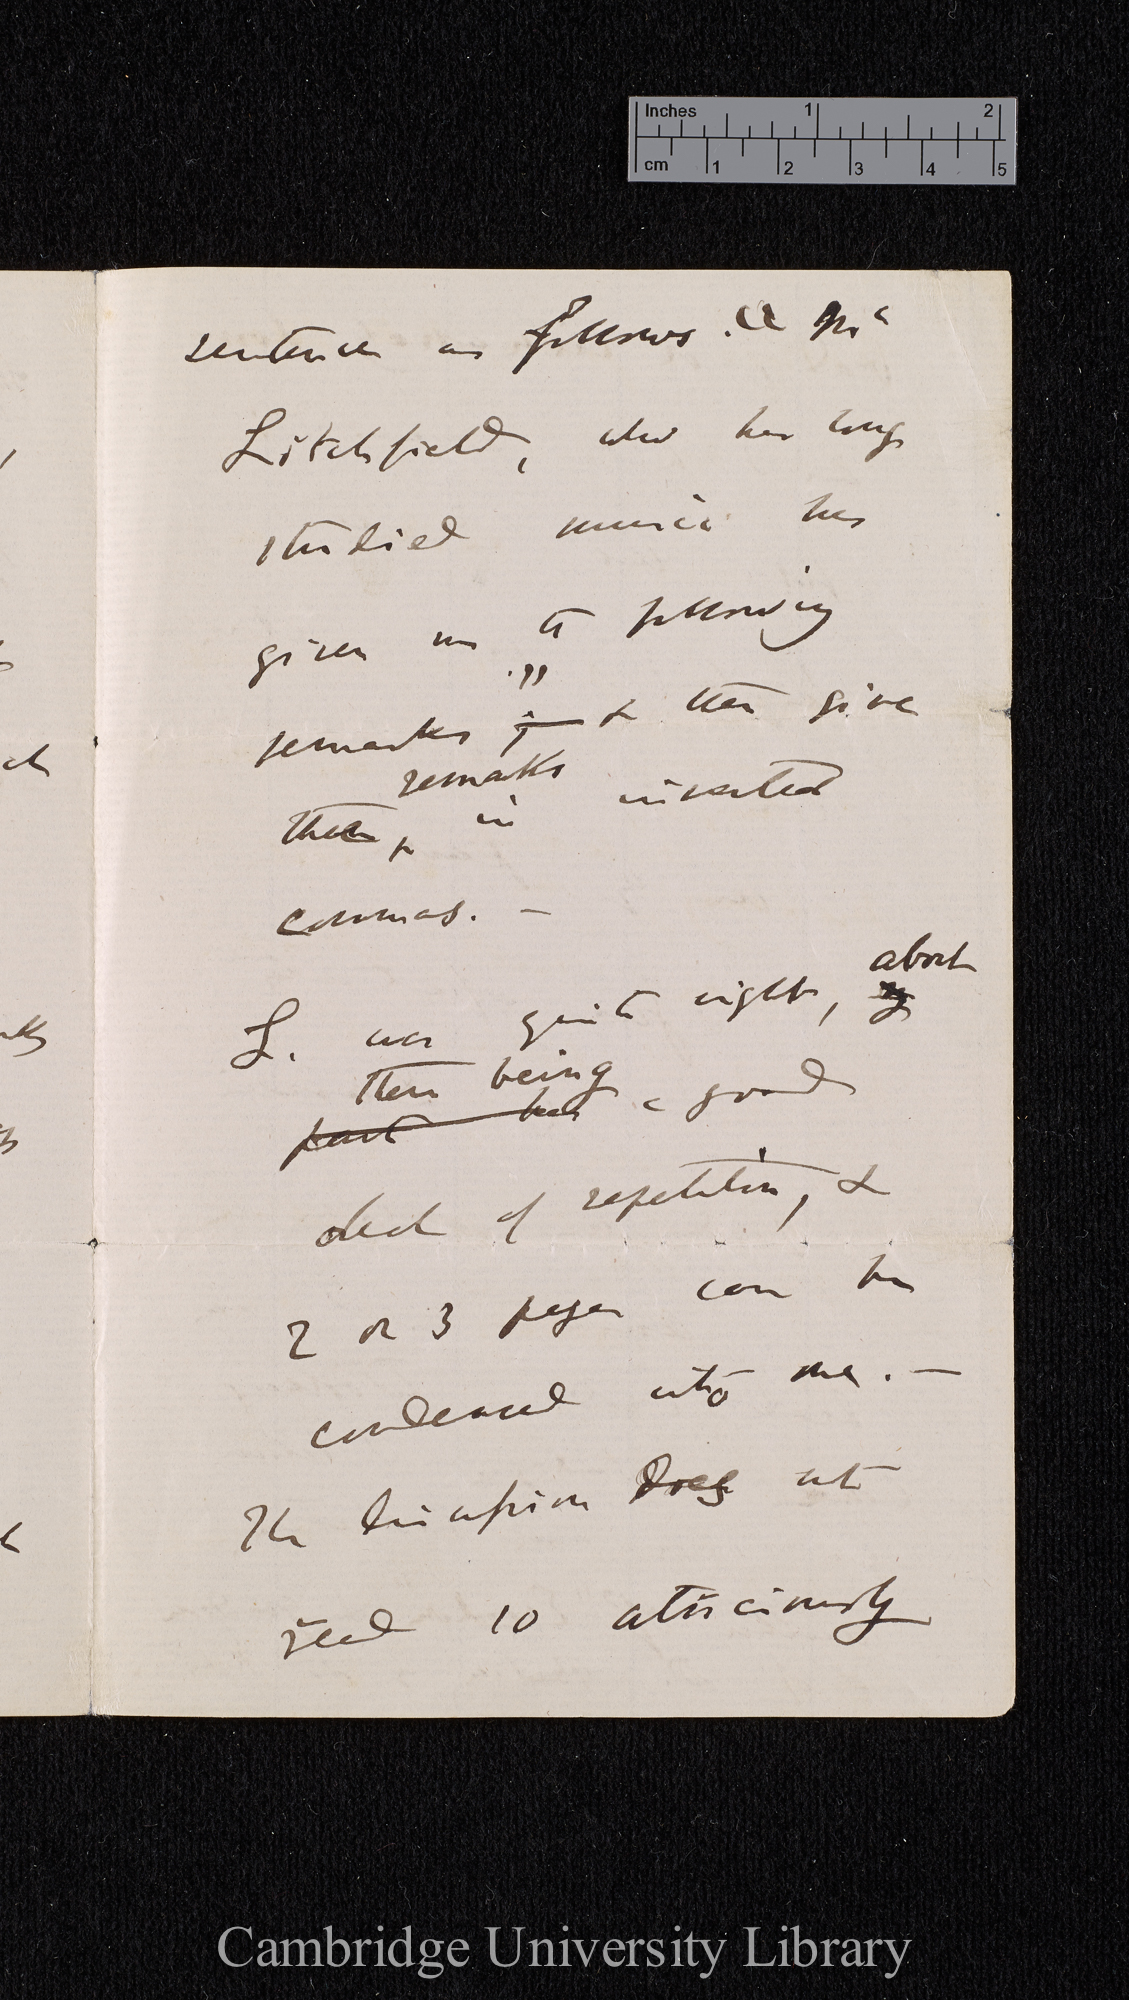 Inches 1 2
cm 1 2 3 4 5
sentence as follows. "Mr
Litchfield, who has long
studied music has
given me the following
."
remarks & then give
remarks
these in inverted
commas. —
about
L. was quite right,
there being
part has a good
deal of repetition, &
2 or 3 pages can be
condensed into one. —
The discussion does not
read so atrociously
Cambridge University Library